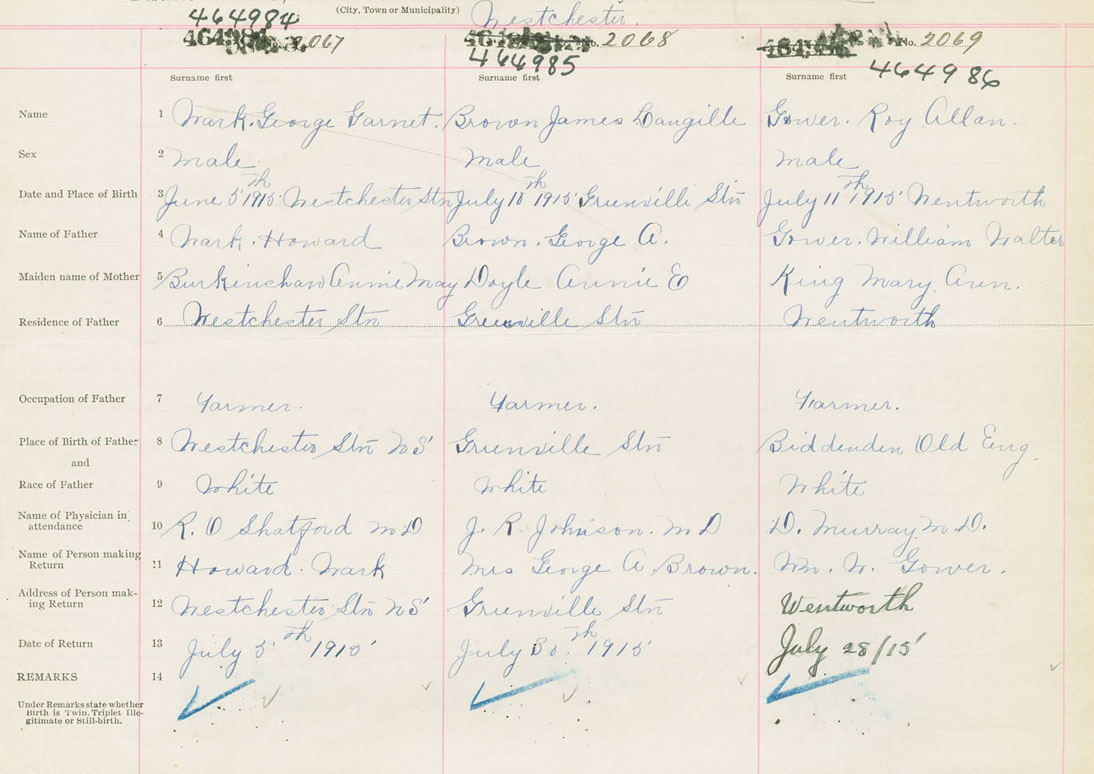 (City, Town or Municipality) Westchester.
464984
2067
No. 2068
464985
No. 2069
464986
Surname first Surname first Surname first
Name 1 Wark. George Garnet. Brown James Langille Gower. Roy Allan.
Sex 2 Male Male Male
Date and Place of Birth 3 June 5th 1915 Westchester Stn July 10th 1915 Greenville Stn July 11th 1915 Wentworth
Name of Father 4 Wark. Howard Brown. George A. Gower. William Walter
Maiden name of Mother 5 Burkinshaw Annie May Doyle Annie E King Mary Ann.
Residence of Father 6 Westchester Stn Greenville Stn Wentworth
Occupation of Father 7 Farmer. Farmer. Farmer.
Place of Birth of Father 8 Westchester Stn NS Greenville Stn Biddenden Old Eng.
and
Race of Father 9 White White White
Name of Physician in
attendance 10 R. O Shatford M.D J. R. Johnson. M D D. Murray M.D.
Name of Person making
Return 11 Howard. Wark Mrs George A Brown. Wm. W. Gower.
Address of Person mak-
ing Return 12 Westchester Stn NS Greenville Stn Wentworth
Date of Return 13 July 5th 1915 July 30th 1915 July 28/15
REMARKS 14
Under Remarks state whether
Birth is Twin, Triplet Ille-
gitimate or Still-birth.